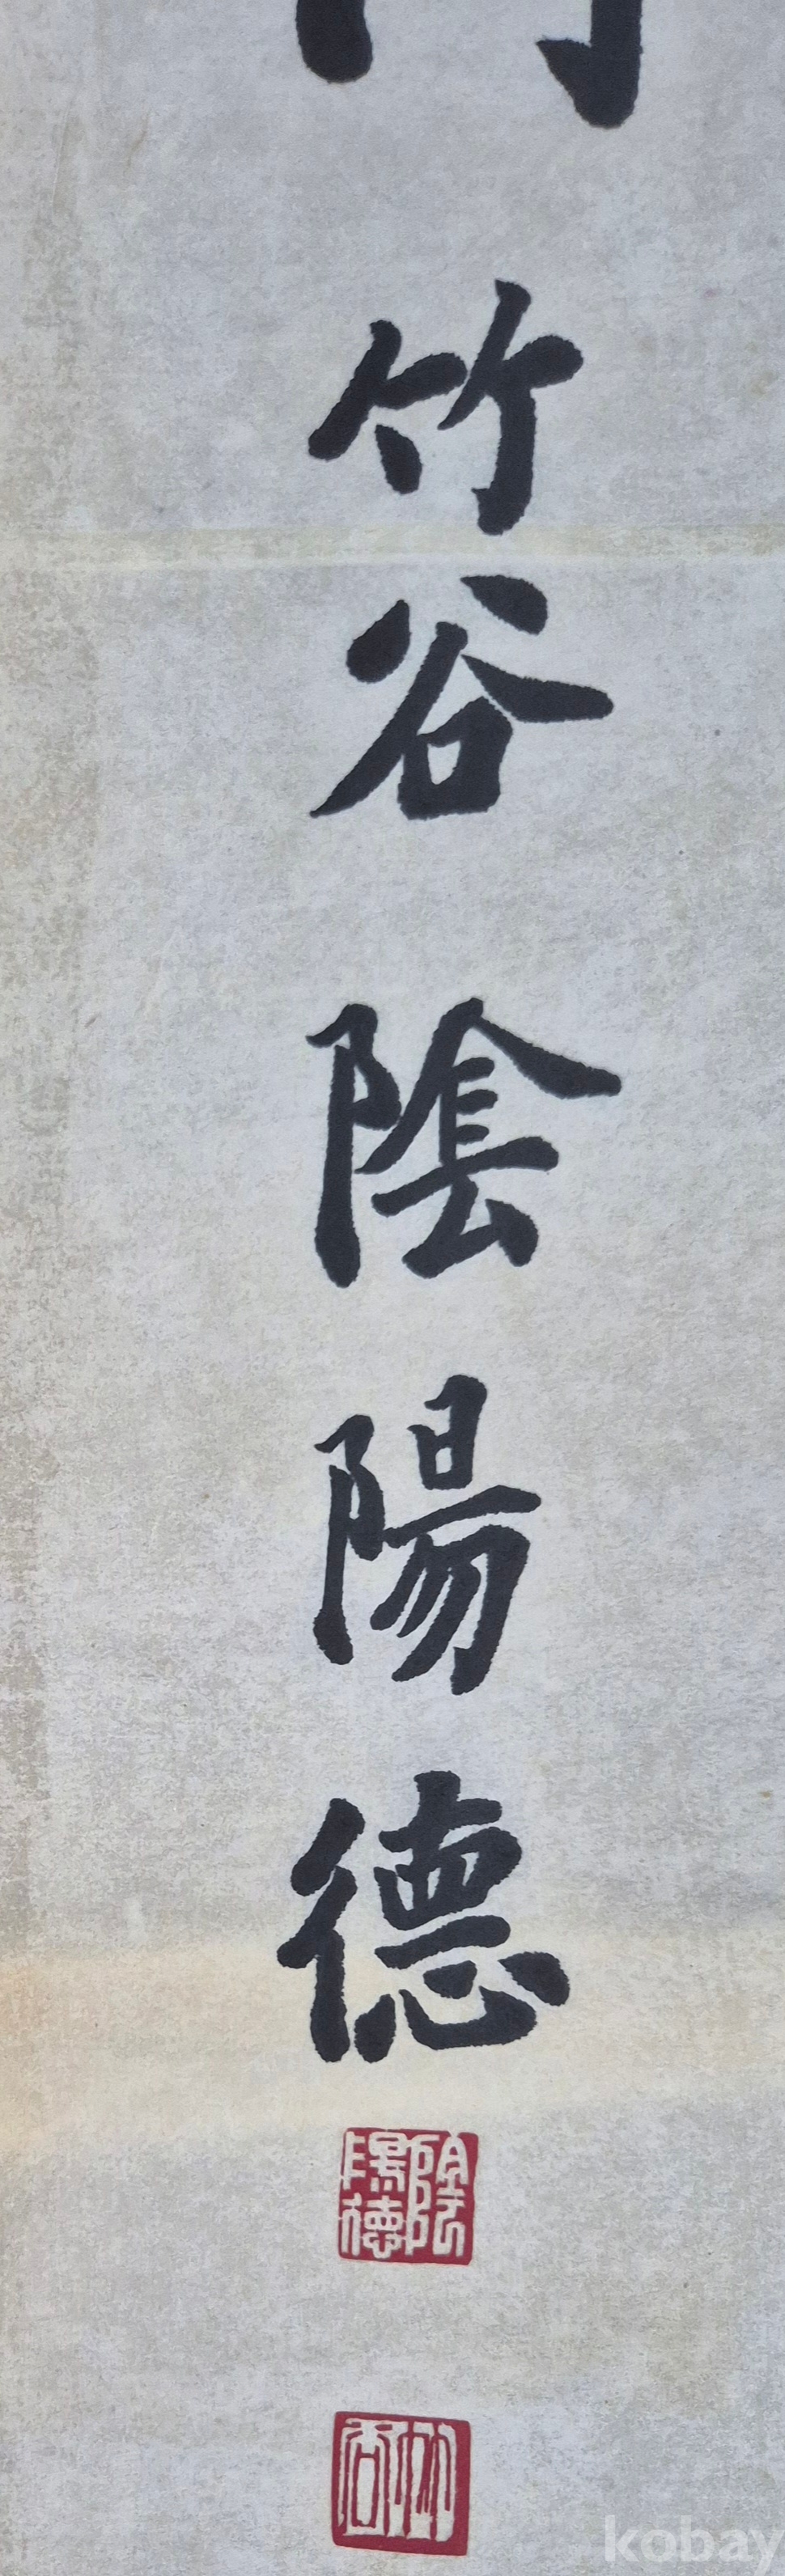 竹谷陰陽德
陰陽德
竹谷
kobay